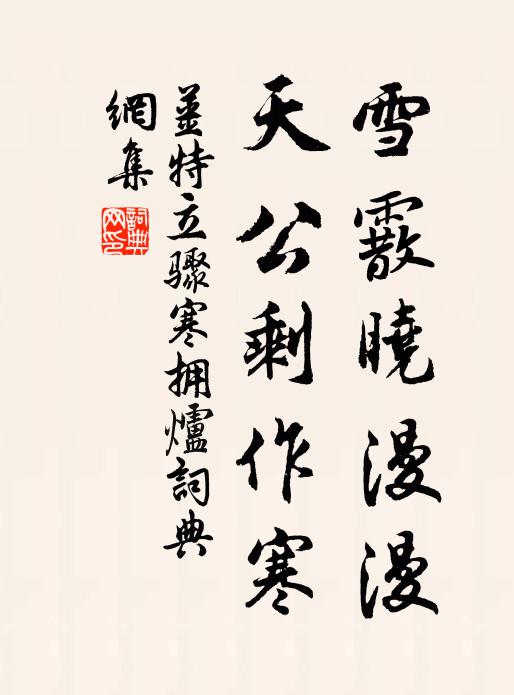 雪霰曉漫漫
天公剩作寒
姜特立驟寒拥爐詞典
網集
詞典网印